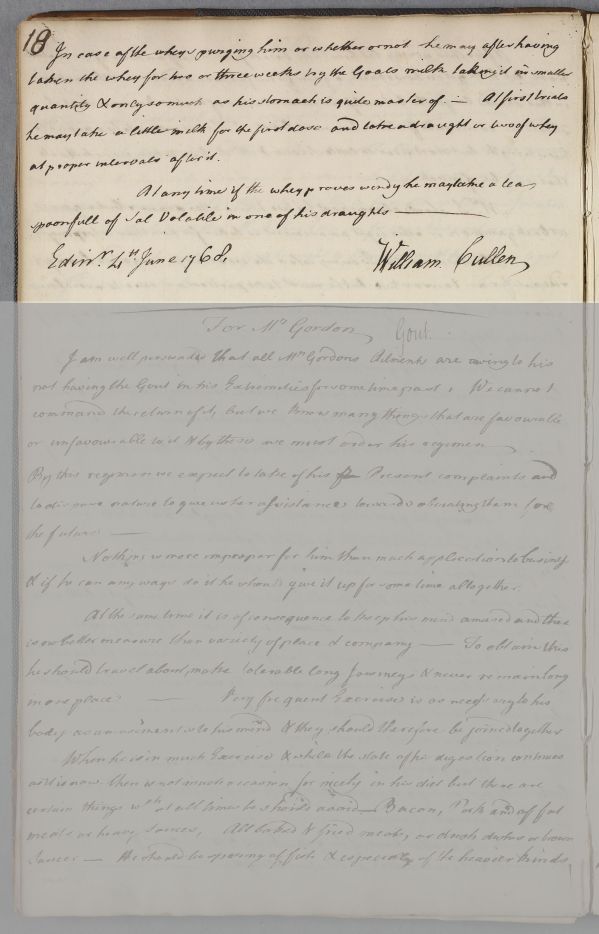 18
In case of the whey purging him or whether or not he may after having
taken the whey for two or three weeks try the Goats milk taking it in smaller
quantity & only so much as his stomach is quite master of. — At first trials
he may take a little milk for the first dose and take a draught or two of whey
at proper intervals after it.
At any time if the whey proves windy he may take a tea
spoonfull of Sal Volatile in one of his draughts —
Edinr. 4th June 1768. William Cullen
For Mr Gordon Gout.
I am well perswaded that all Mr Gordons Ailments are owing to his
not having the Gout in his Extremities for some time past. We cannot
command the return of it, but we know many things that are favourable
or unfavourable to it & by these we must order his regimen
By this regimen we expect to take of his Present complaints and
to dispose nature to give us her assistance towards obviating them for
the future —
Nothing is more improper for him than much application to business
& if he can any ways do it he should give it up for some time altogether.
At the same time it is of consequence to keep his mind amused and there
is no better measure than variety of place & company — To obtain this
he should travel about, make tolerable long Journeys & never remain long
in one place — Very frequent Exercise is as necessary to his
body as amusement is to his mind & they should therefore be joined together
When he is in much Exercise & while the state of his digestion continues
as it is now there is not much occasion for nicety in his diet but there are
certain things wch at all times he should avoid — Bacon, Pork and
meats or heavy Sauces, All baked & fried meats, or
Sauces — He should be sparing of fish & especially of the heavier kinds